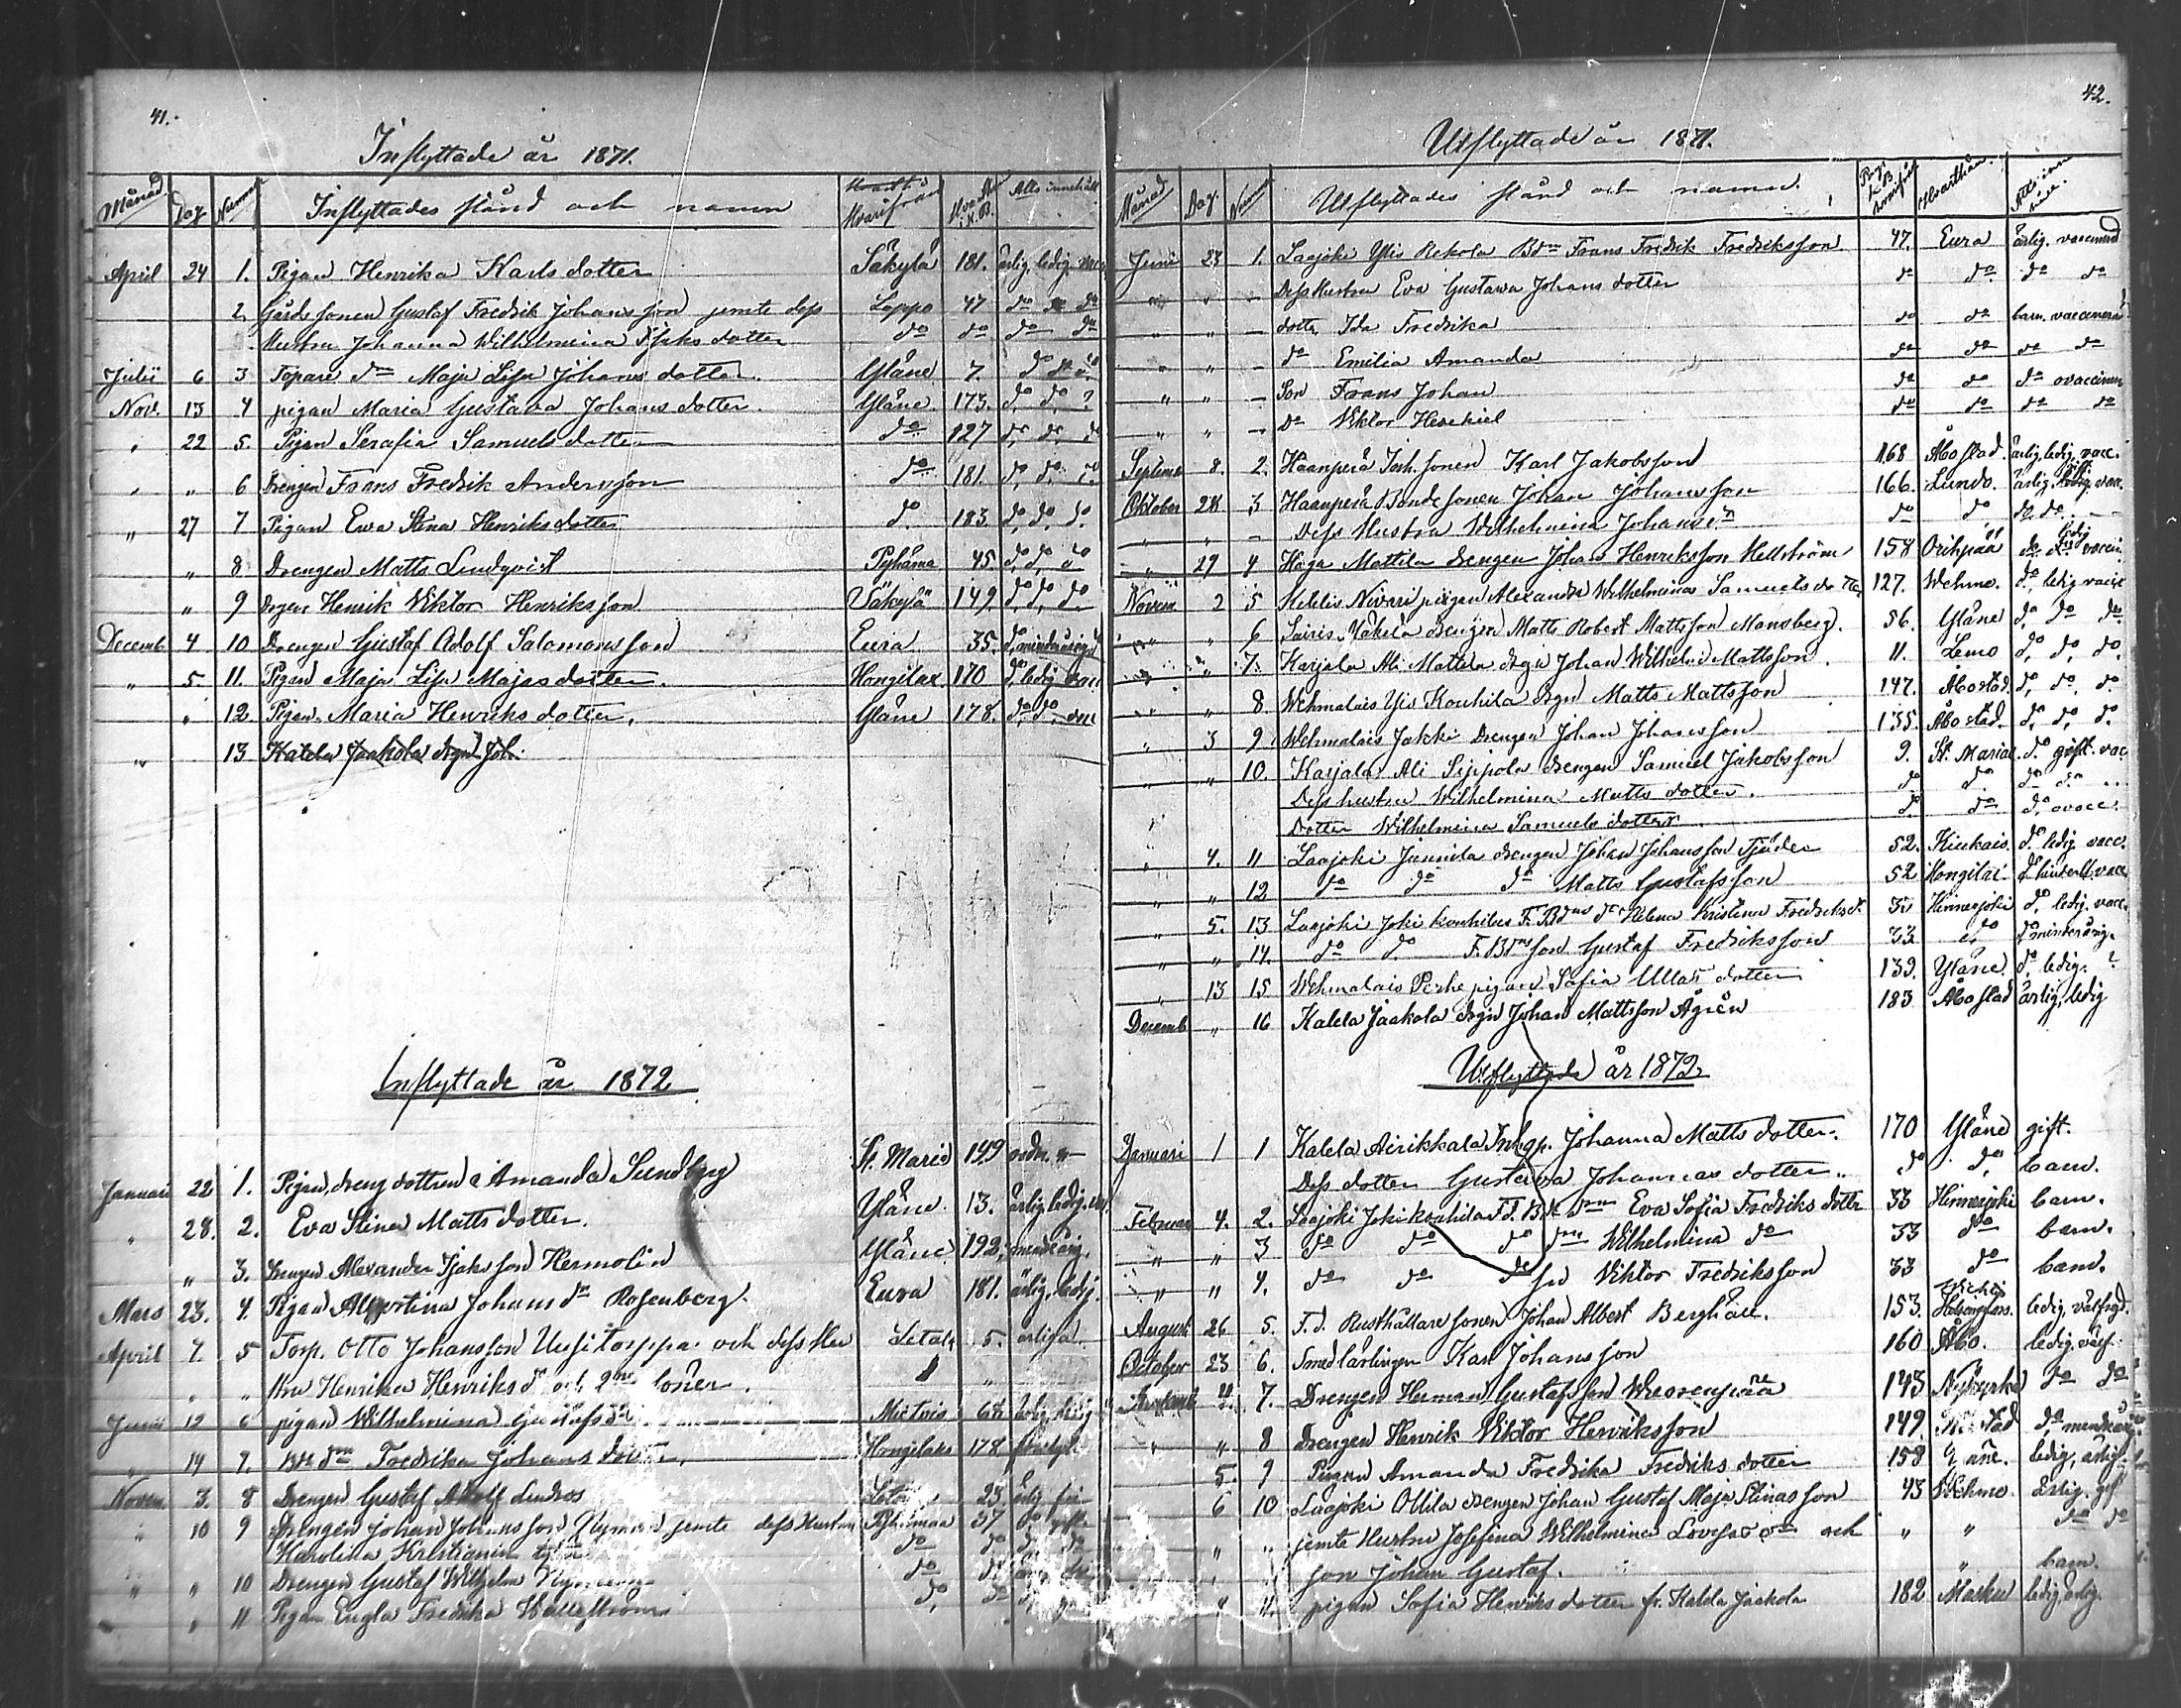 41.
Inflyttade år 1871.
Månad Dag Numer Inflyttades stånd och namn Hvarifrån K.B. Atts innehåll
April 24 1. Pigan Henrika Karls dotter Säkylä 181. ärlig, ledig, vacc
2 Gårds sonen Gustaf Fredrik Johansson jemte dess Loppo 47 do do do
Hustru Johanna Wilhelmina Isaks dotter do do do do
Julii 6 3 Topare dn Maja Lisa Johans dotter. Yläne 7. do do
Nov. 13 4 pigan Maria Gustava Johans dotter. Yläne. 173. do, do, ?
" 22 5. Pigan Serafia Samuels dotter do 127 do, do, do
" " 6 Drengen Frans Fredrik Andersson do 181. do, do, ?
" 27 7 Pigan Ewa Stina Henriks dotter do 183 do, do, do.
" 8 Drengen Matts Lindqvist Pyhäma 45 do, do,
" 9 Drgen Henrik Wiktor Henriksson Säkylä 149. do, do, do
Decemb 4 10 Drengen Gustaf Adolf Salomonsson Eura 35. do, minderårig
" 5. 11. Pigan Maja Lisa Majas dotter. Hongilax. 170 do, ledig vacc
" 12. Pigan Maria Henriks dotter. Yläne 178. do, do,
" 13 Kalela Jaakola drgn Joh.
Inflyttade år 1872
Januari 22 1. Pigan, dreng dottren Amanda Sundberg St. Marie 199
" 28. 2. Eva Stina Matts dotter. Yläne. 13. ärlig, ledig, vac.
" 3. Drengen Alexander Isaksson Hermolin Yläne 192, minderårig.
Mars 23. 4. Pigan Albertina Johans dr Rosenberg. Eura 181. ärlig, ledig.
April 7. 5 Torp. Otto Johansson Uusitorppa och dess Hu Letala 5. ärliga.
" " stru Henrika Henriks dr och 2ne söner. "
Junii 12 6 pigan Wilhelmina Gustafs dr Mietois 68 ärlig, ledig
" 14 7. Bde dn Fredrika Johans dotter. Hongilaks 178
Novem 3. 8 Drengen Gustaf Adolf Lindros 23. ärlig
" 10 9 Drengen Johan Johansson Nyman jemte dess Hustru Pyhämaa 37 do gift
Karolina Kristianin do do do do
" " 10 Drengen Gustaf Wilhelm Nyman do do
" 11 Pigan Engla Fredrika Hällström do, do
42.
Utflyttade år 1871.
Månad Dag. Numer Utflyttades stånd och namn. Pag. K.B. Hvarthän.
Juni 23 1. Laajoki Ylis Rekola Bdn Frans Fredrik Fredriksson 47. Eura ärlig. vaccinerad
" " – Dess Hustru Eva Gustawa Johans dotter do do do do
" " – dotter Ida Fredrika do do barn. vaccinerad
" " – do Emilia Amanda do do do do
" " – Son Frans Johan do do do ovaccinera
" " – Do Viktor Hesekiel do do do do
Septemb 8. 2. Haanperä Inh. sonen Karl Jakobsson 168 Åbo stad. ärlig, ledig, vacc.
Oktober 28 3 Haanperä Bonde sonen Johan Johansson 166. Lundo. ärlig, gift vacc.
" " – Dess Hustru Wilhelmina Johans dr do do do, do.
" 29 4 Haga Mattila drengen Johan Henriksson Hellström 158 Orihpää do ledig vaccin
Novem 2 5 Nivari pigan Alexandra Wilhelmina Samuels dotter 127. Wehmo. do, ledig vacc
" " 6 Sairis Yläkilä drengen Matts Robert Mattsson Mansberg. 56. Yläne do do do
" " 7. Karjala Ali Mattila drgn Johan Wilhelm Mattsson. 11. Lemo do, do, do
" " 8 Wehmalais Yis Kouhila drgn Matts Mattsson 147. Åbo stad. do, do, do.
" 3 9. Wehmalais Jakki Drengen Johan Johansson 135. Åbo stad. do, do, do.
" " 10. Karjala Ali Sippola drengen Samuel Jakobsson 9. St. Mariæ. do gift. vac
Dess hustru Wilhelmina Matts dotter. do do. do do
" Dotter Wilhelmina Samuels dotter do. do do. ovacc.
" 4. 11 Laajoki Junnila drengen Johan Johansson Tjäder 52. Kiukais. do, ledig. vacc.
" " 12 do do do Matts Gustafsson 52 Hongilax.
" 5. 13 Laajoki Joki kouhilas F. Bdns dr Helena Kristina Fredriks dr 33 Hinnerjoki do, ledig. vacc.
" " 14. do do F. Bdns son Gustaf Fredriksson 33 do do minderårig.
" 13 15 Wehmalais Perhe pigan Sofia Ullas dotter 139. Yläne do, ledig. ?
Decemb " 16 Kalela Jaakola drgn Johan Mattsson Ågren 183 Åbo stad ärlig, ledig
Utflyttade år 1872
Januari 1 1 Kalela Airikkala Inhap. Johanna Matts dotter. 170 Yläne gift.
Dess dotter Gustava Johannas dotter. do do, barn.
Februar 4. 2. Laajoki Jokikouhila F.d. Bde dn Eva Sofia Fredriks dotter 33 Hinnerjoki barn.
" " 3 do do do dn Wilhelmina do 33 do barn.
" " 4. do do do sn Viktor Fredriksson 33 do barn.
Augusti 26 5. F.d. Rusthållare sonen Johan Albert Berghäll. 153. Helsingfors. ledig, välfrejd.
October 23 6. Smedlärlingen Karl Johansson 160 Åbo. ledig. välf.
4. 7. Drengen Herman Gustafsson Wuorenpää 143 Nykyrka do do
" " 8 Drengen Henrik Viktor Henriksson 149. do, minderårig
5. 9 Pigan Amanda Fredrika Fredriks dotter 158 Yläne. ledig, ärlig.
6 10 Laajoki Ollila drengen Johan Gustaf Maja Stinas son 43 Wehmo. Ärlig. gif
" " jemte Hustru Josefina Wilhelmina Lovisas dr och " " do do
" " son Johan Gustaf. " barn.
" 11. pigan Sofia Henriks dotter fr. Kalela Jaakola 182 Masku ledig, ärlig.